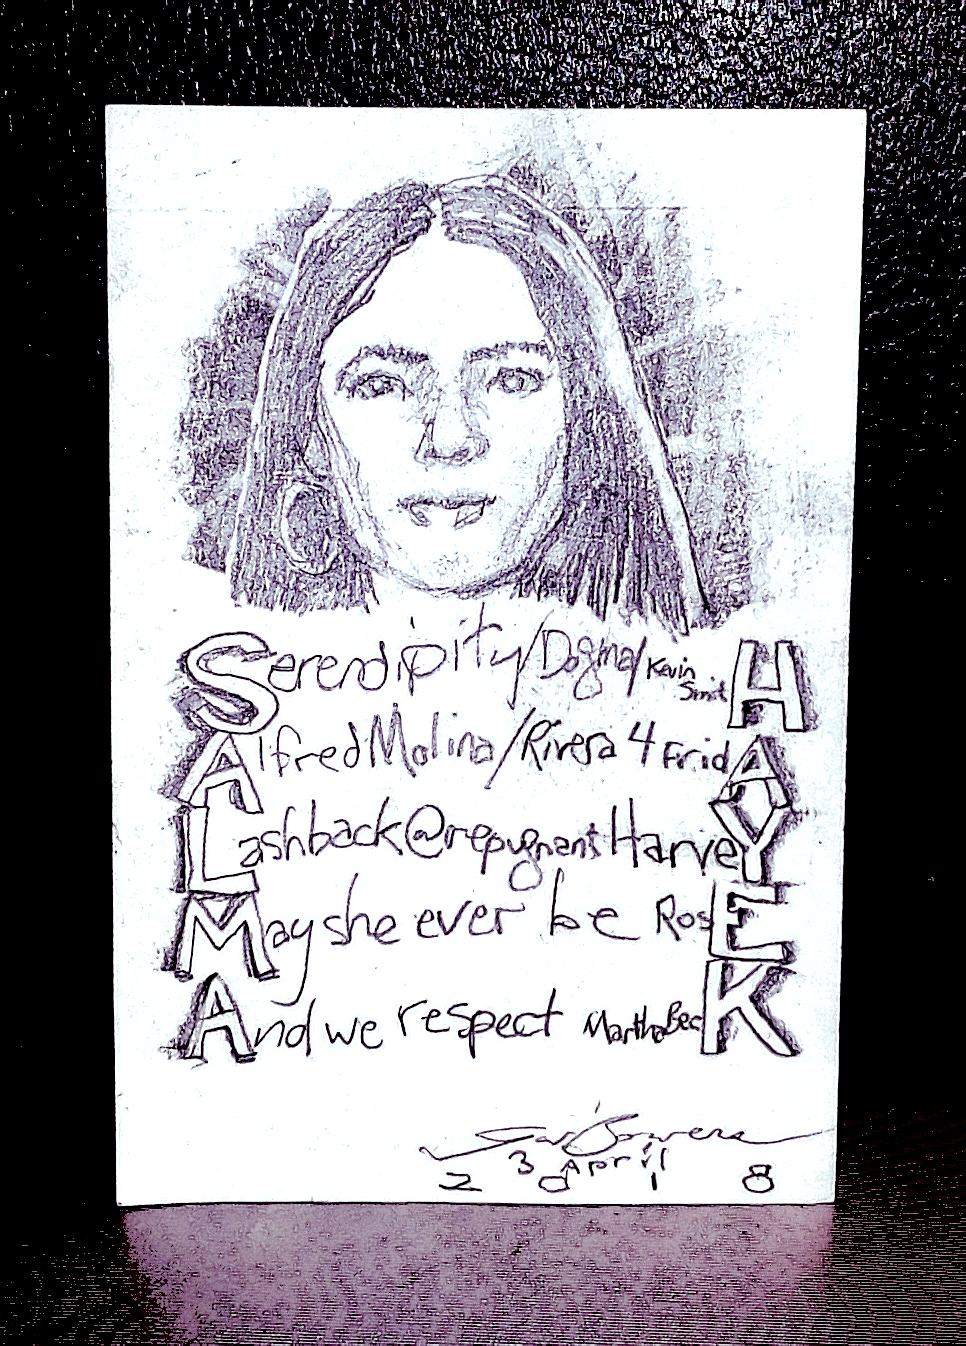 Serendipity/Dogma/Kevin Smit H
Alfred Molina/Rivera 4 Frid A
Lashback@repugnant Harve Y
May she ever be Ros E
And we respect Martha Bec K
30 April
2018